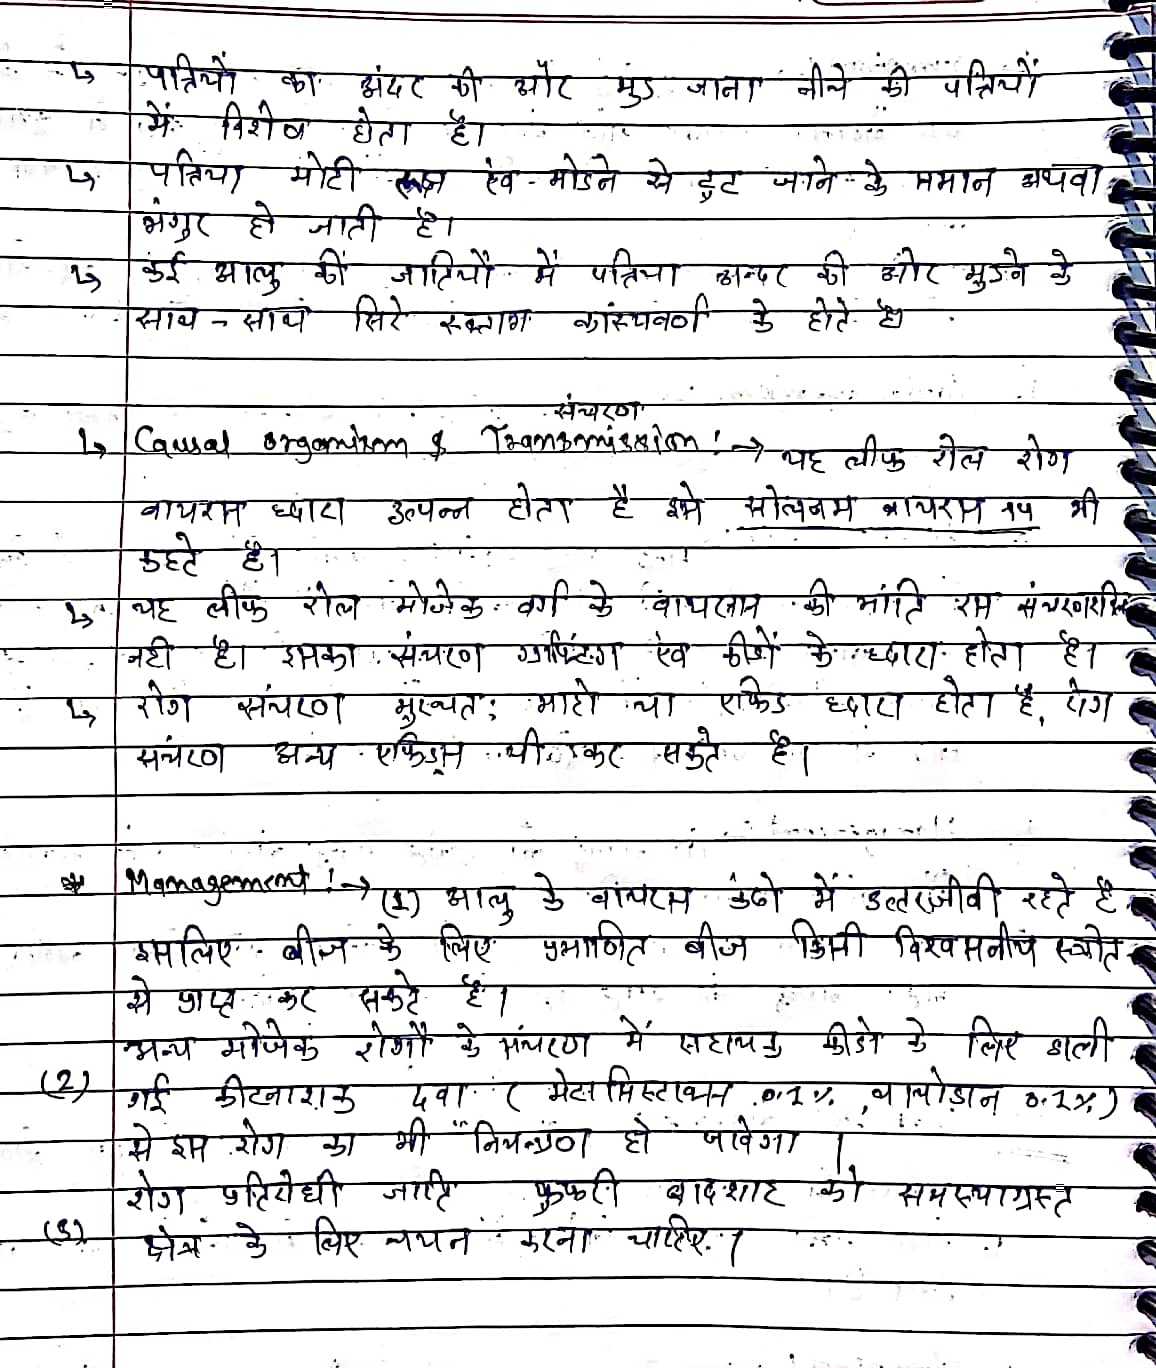 ↳ पत्तियों का अंदर की और मुड जाना नीचे की पत्तियों
में विशेष होता है।
↳ पत्तिया मोटी एंव मोडने से टुट जाने के समान अथवा
भंगुर हो जाती है।
↳ कई आलु की जातियों में पत्तिया अन्दर की और मुडने के
साथ - साथ सिरे कांस्यवर्ण के होते है
संचरण
↳ Causal organism & Transmission :→ यह लीफ रोल रोग
वायरस ध्दारा उत्पन्न होता है इसे सोलेनम वायरस १५ भी
कहते है।
↳ यह लीफ रोल मोजेक वर्ग के वायरस की भांति रस संचरणशील
नही है। इसका संचरण ग्राफ्टिंग एंव कीडों के ध्दारा होता है।
↳ रोग संचरण मुख्यत: माहो या एफिड ध्दारा होता है, रोग
संचरण अन्य एफिड्स भी कर सकते है।
* Management :→ (1) आलु के वायरस कंदो में उत्तरजीवी रहते है
इसलिए बीज के लिए प्रमाणित बीज किसी विश्वसनीय स्त्रोत
से प्राप्त कर सकते है।
अन्य मोजेक रोगों के संचरण में सहायक कीडो के लिए डाली
(2) गई कीटनाशक दवा ( मेटासिस्टाक्स 0.1%, 0.1%)
से इस रोग का भी नियन्त्रण हो जावेगा ।
रोग प्रतिरोधी जाति कुफरी बादशाह को समस्याग्रस्त
(3) क्षेत्र के लिए चयन करना चाहिए।